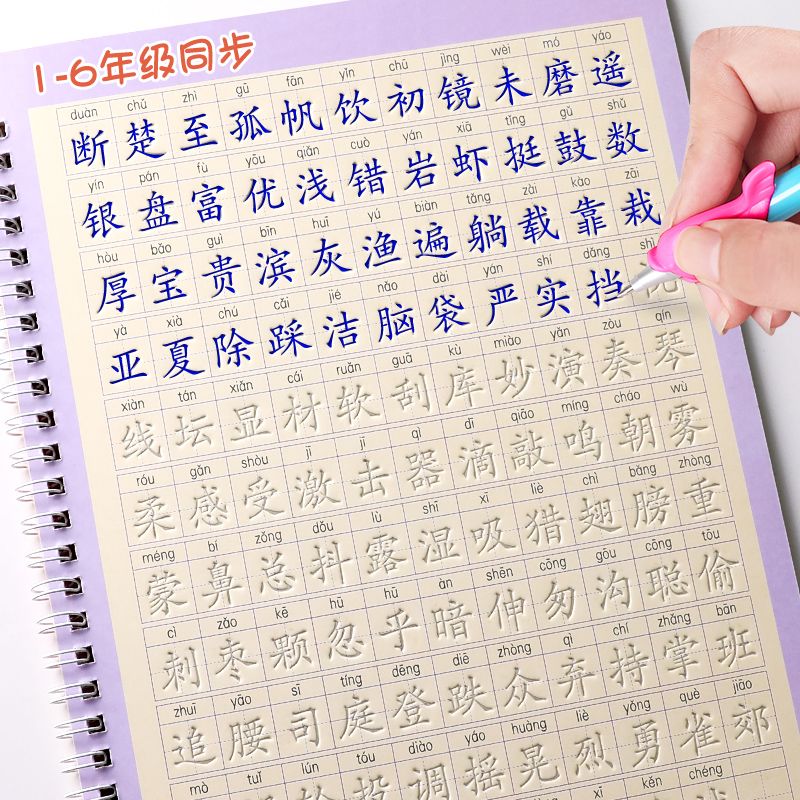 1-6年级同步
duàn chǔ zhì gū fān yǐn chū jìng wèi mó yáo
断 楚 至 孤 帆 饮 初 镜 未 磨 遥
yín pán fù yōu qiǎn cuò yán xiā tǐng gǔ shǔ
银 盘 富 优 浅 错 岩 虾 挺 鼓 数
hòu bǎo guì bīn huī yú biàn tǎng zài kào zāi
厚 宝 贵 滨 灰 渔 遍 躺 载 靠 栽
yà xià chú cǎi jié nǎo dài yán shí dǎng shì
亚 夏 除 踩 洁 脑 袋 严 实 挡
xiàn tán xiǎn cái ruǎn guā kù miào yǎn zòu qín
线 坛 显 材 软 刮 库 妙 演 奏 琴
róu gǎn shòu jī jī qì dī qiāo míng cháo wù
柔 感 受 激 击 器 滴 敲 鸣 朝 雾
méng bí zǒng dǒu lù shī xī liè chì bǎng zhòng
蒙 鼻 总 抖 露 湿 吸 猎 翅 膀 重
cì zǎo kē hū hū àn shēn cōng gōu cōng tōu
刺 枣 颗 忽 乎 暗 伸 匆 沟 聪 偷
zhuī yāo sī tíng dēng diē zhòng qì chí zhǎng bān
追 腰 司 庭 登 跌 众 弃 持 掌 班
mò tuǐ lún tóu diào yáo huàng liè yǒng què jiāo
调 摇 晃 烈 勇 雀 郊